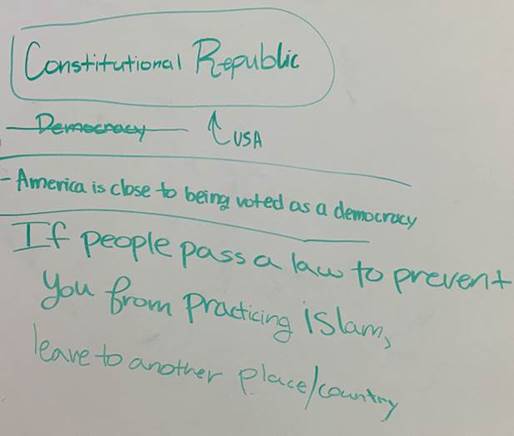 Constitutional Republic
Democracy ↑ USA
- America is close to being voted as a democracy
If people pass a law to prevent
you from practicing islam,
leave to another place/country